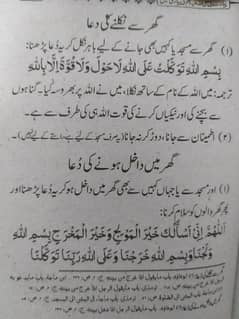 گھر سے نکلنے کی دعا
(۱) گھر سے مسجد یا کہیں بھی جانے کے لیے باہر نکل کر یہ دعا پڑھنا:
بِسْمِ اللّٰهِ تَوَكَّلْتُ عَلَى اللّٰهِ لَا حَوْلَ وَلَا قُوَّةَ اِلَّا بِاللّٰهِ
ترجمہ: میں اللہ کے نام کے ساتھ نکلا، میں نے اللہ پر بھروسہ کیا۔ گناہوں
سے بچنے کی اور نیکیاں کرنے کی قوت اللہ ہی کی طرف سے ہے۔
(۲) اطمینان سے جانا، دوڑ کر نہ جانا
گھر میں داخل ہونے کی دُعا
(۱) اور مسجد سے یا جہاں کہیں سے بھی گھر میں داخل ہو کر یہ دعا پڑھنا اور
پھر گھر والوں کو سلام کرنا:
اَللّٰهُمَّ اِنِّيْ اَسْأَلُكَ خَيْرَ الْمَوْلِجِ وَخَيْرَ الْمَخْرَجِ بِسْمِ اللّٰهِ
وَلَجْنَا وَبِسْمِ اللّٰهِ خَرَجْنَا وَعَلَى اللّٰهِ رَبِّنَا تَوَكَّلْنَا